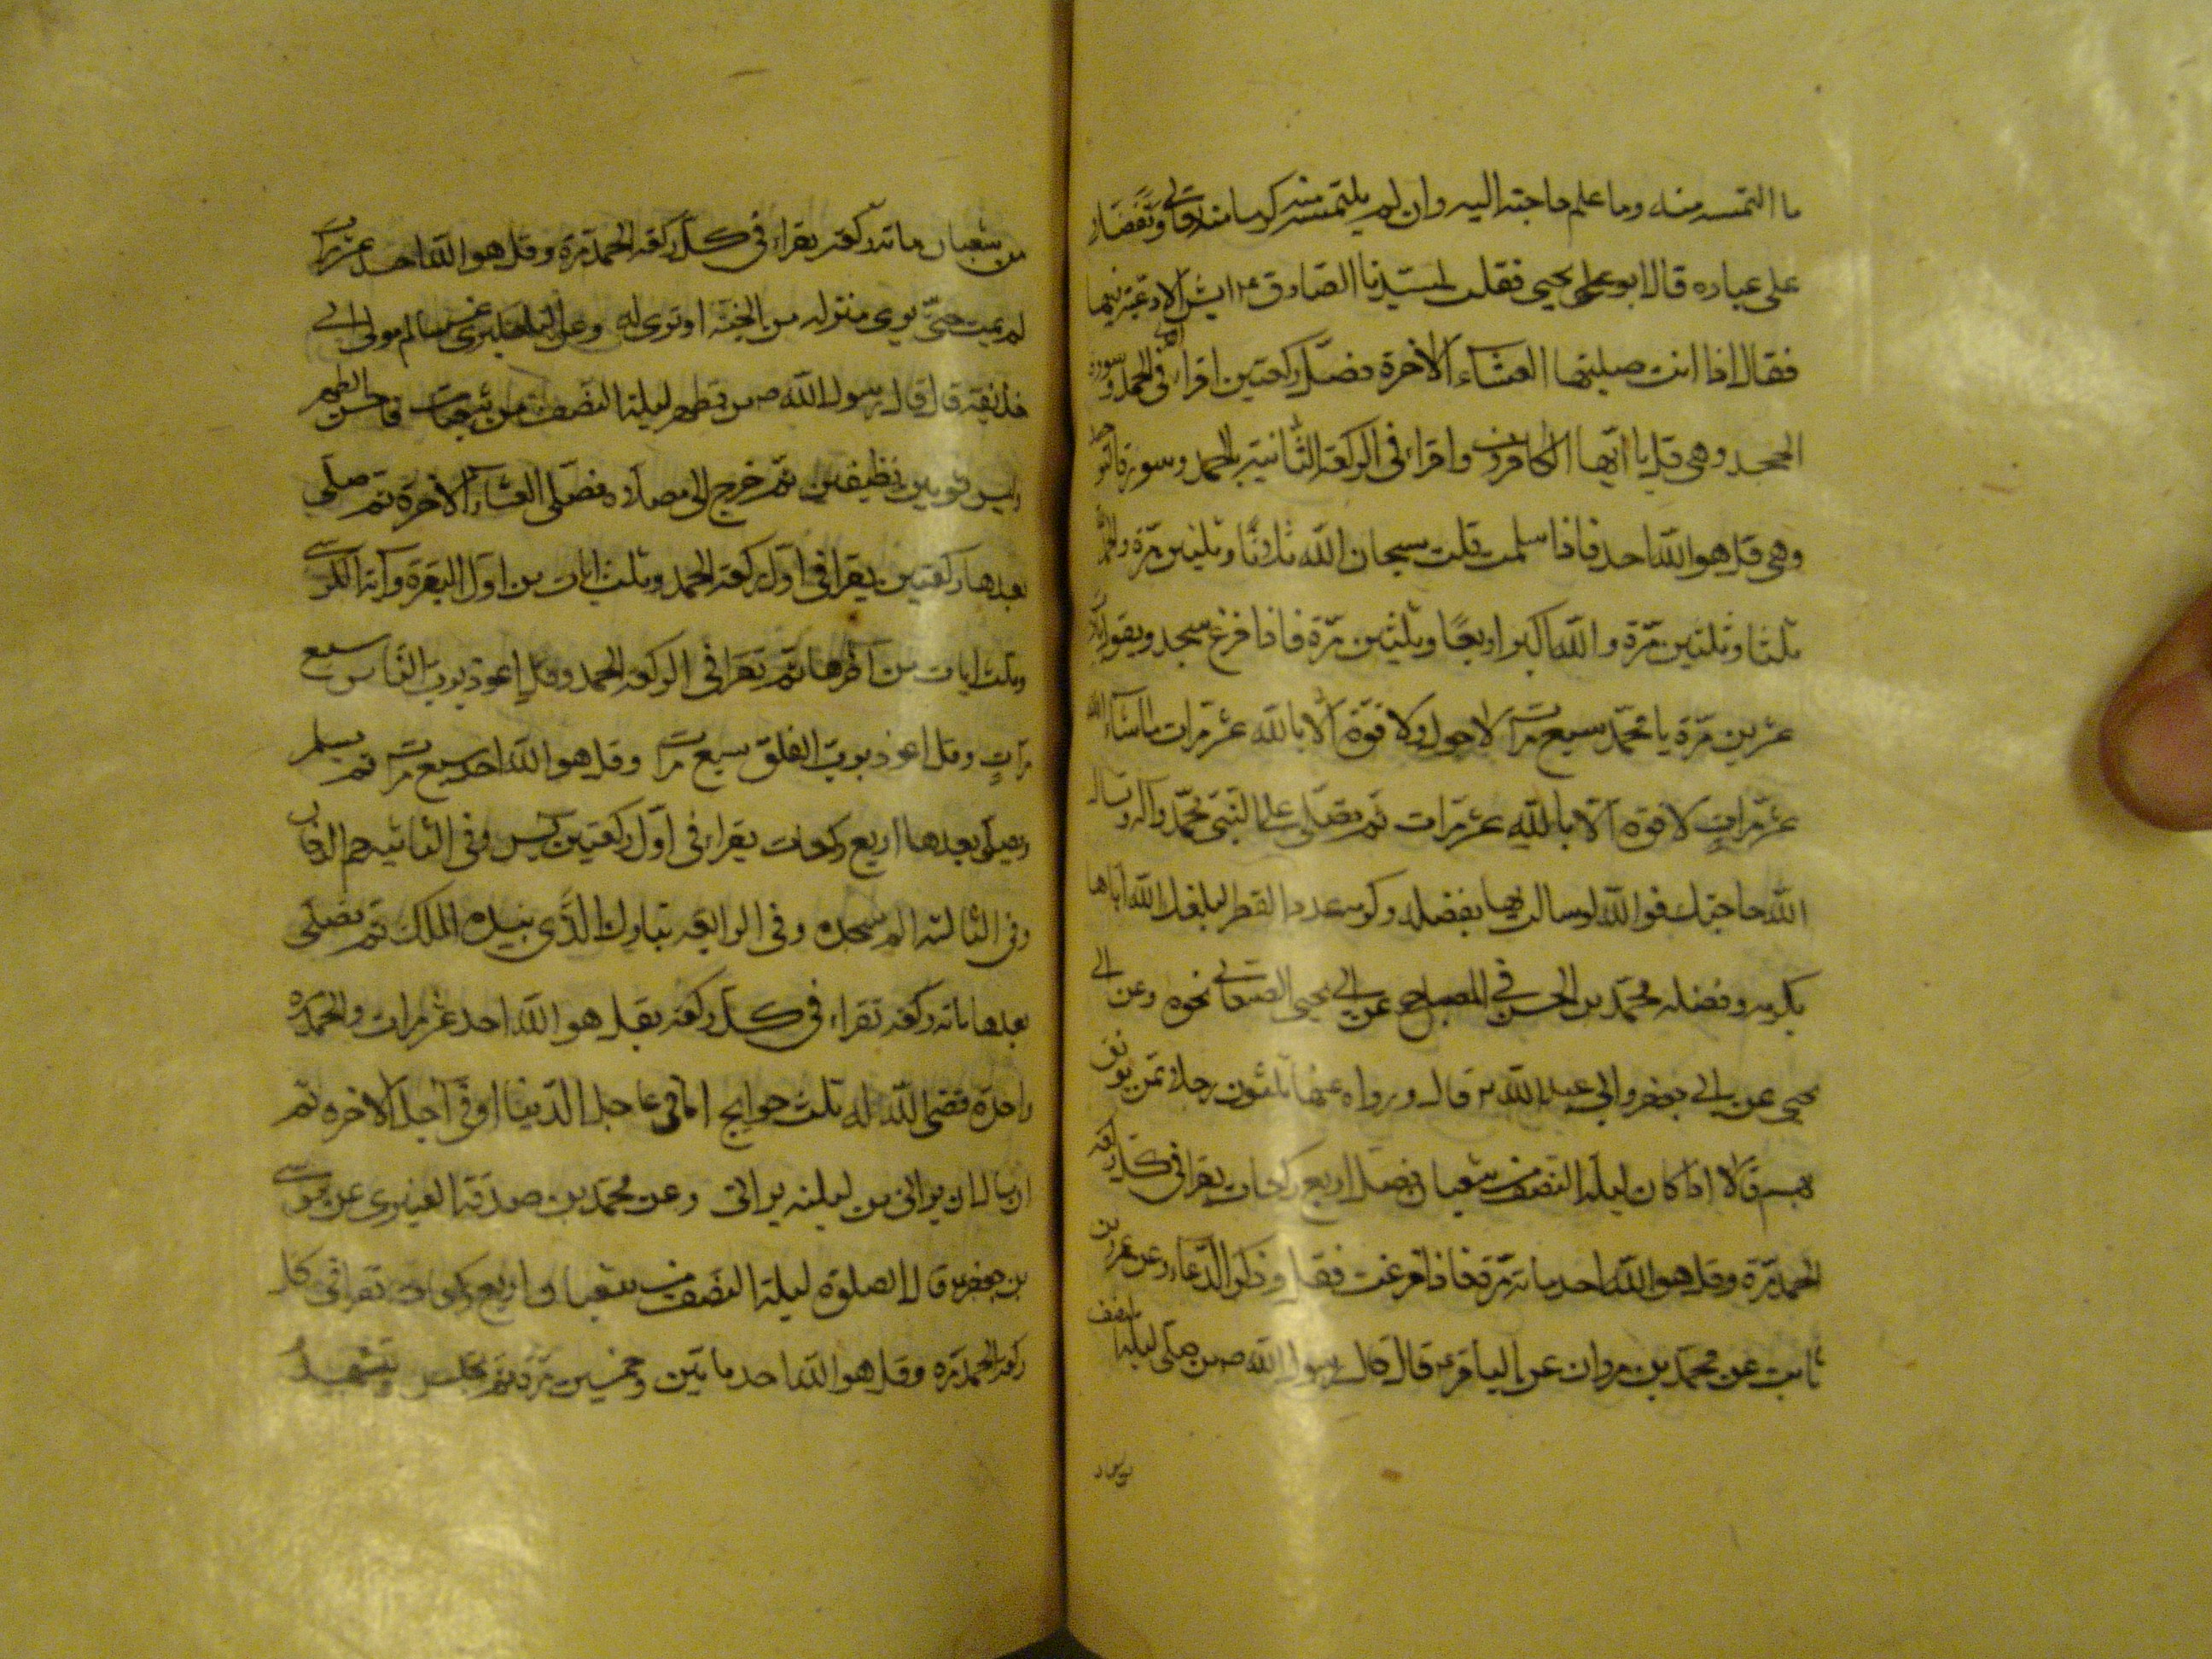 ما التمسه منه وما علم حاجته اليه وان لم يلتمسه منه كرما منه تعالى وتفضلا
على عباده قال ابو يحيى فقلت لسيدنا الصادق ع ايش الادعية فيها
فقال اذا انت صليتها العشاء الآخرة فصل ركعتين اقراء في الاولى الحمد وسورة
الجحد وهي قل يا ايها الكافرون واقراء في الركعة الثانية الحمد وسورة التوحيد
وهي قل هو الله احد فاذا سلمت قلت سبحان الله ثلاثا وثلثين مرة والحمد لله
ثلثا وثلثين مرة والله اكبر اربعا وثلثين مرة فاذا فرغ سجد ويقول
عشرين مرة يا محمد سبع مرات لا حول ولا قوة الا بالله عشر مرات ما شاء الله
عشر مرات لا قوة الا بالله عشر مرات ثم تصلى على النبي محمد وآله وتسال
الله حاجتك فوالله لو سالت بها بفضله وكرمه عدد القطر لبلغك الله اياها
بكرمه وفضله محمد بن الحسن في المصباح عن ابي يحيى الصنعاني نحوه وعن ابي
يحيى عن ابي جعفر وابي عبد الله ع قال ورواه عنهما ثلثون رجلا ممن يوثق
بهم قالا اذا كان ليلة النصف من شعبان فصل اربع ركعات يقرا في كل ركعة
الحمد مرة وقل هو الله احد ماتة مرة فاذا فرغت فقل وذكر الدعاء وعن عمرو بن
ثابت عن محمد بن مروان عن الباقر ع قال قال رسول الله ص من صلى ليلة النصف
من شعبان ماتة ركعة يقراء في كل ركعة الحمد مرة وقل هو الله احد عشر مرات
لم يمت حتى يرى منزله من الجنة او ترى له وعن سالم مولى ابي
حذيفة قال قال رسول الله ص من تطهر ليلة النصف من شعبان فاحسن الطهر
ولبس ثوبين نظيفين ثم خرج الى مصلاه فصلى العشاء الآخرة ثم صلى
بعدها ركعتين يقرا في اول ركعة الحمد وثلث ايات من اول البقرة وآية الكرسي
وثلث ايات من آخرها ثم يقرا في الركعة الحمد وقل اعوذ برب الناس سبع
مرات وقل اعوذ برب الفلق سبع مرات وقل هو الله احد سبع مرات ثم يسلم
ويصلى بعدها اربع ركعات يقراء في اول ركعتين يس وفى الثانية حم الدخان
وفى الثالثة الم سجده وفى الرابعة تبارك الذى بيده الملك ثم تصلى
بعدها ماتة ركعة تقراء في كل ركعة بقل هو الله احد عشر مرات والحمد مرة
واحدة قضى الله له ثلث حوايج اما في عاجل الدنيا او في آجل الآخره ثم
ان سال ان يراني من ليلته يراني وعن محمد بن صدقة العنبرى عن موسى
بن جعفر ع قال الصلوة ليلة النصف من شعبان اربع ركعات تقرا في كل
ركعة الحمد مرة وقل هو الله احد ماتين وخمسين مرة ثم تجلس وتتشهد